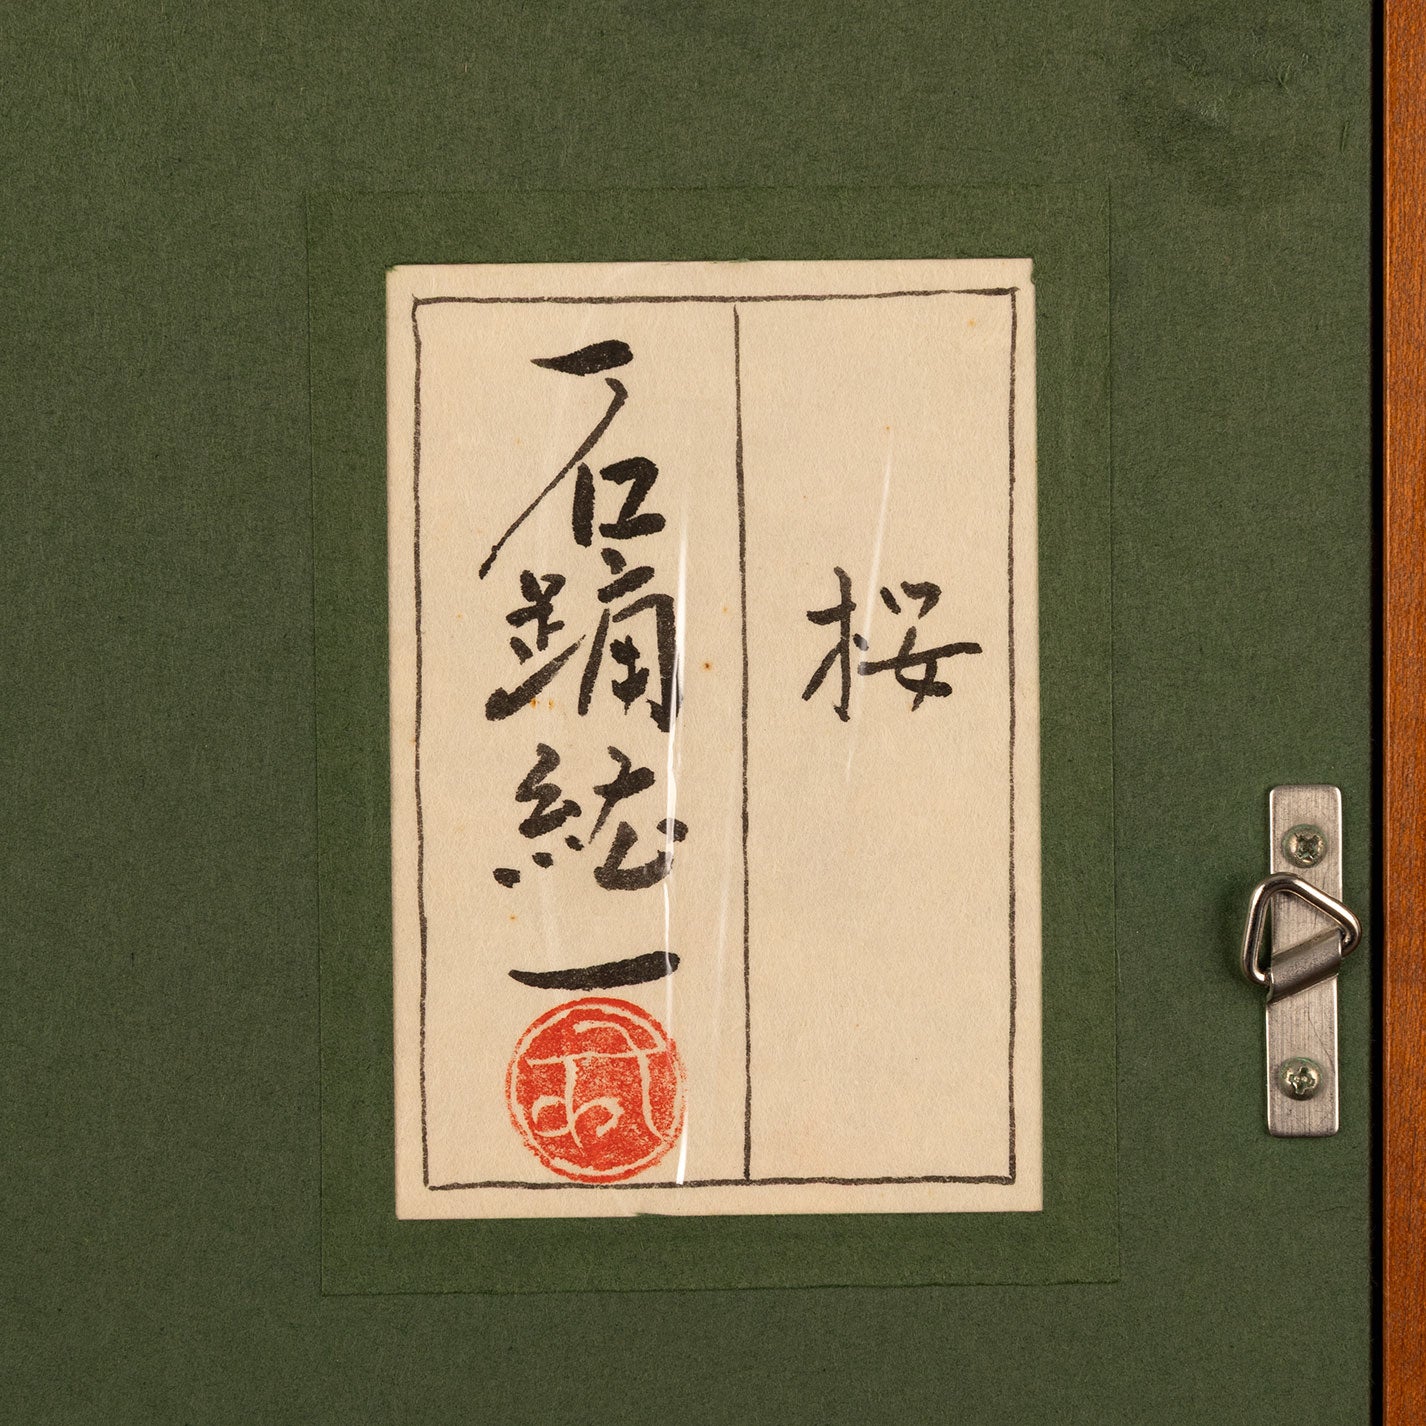 桜
石踊紘一